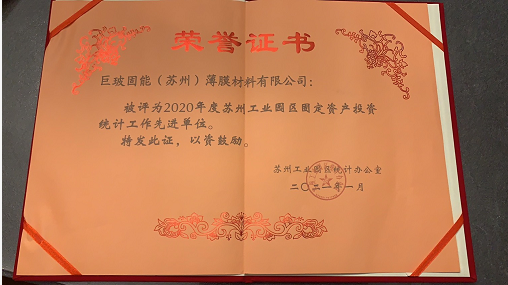 荣誉证书
巨玻固能（苏州）薄膜材料有限公司：
被评为2020年度苏州工业园区固定资产投资
统计工作先进单位。
特发此证，以资鼓励。
苏州工业园区统计办公室
二〇二一年一月